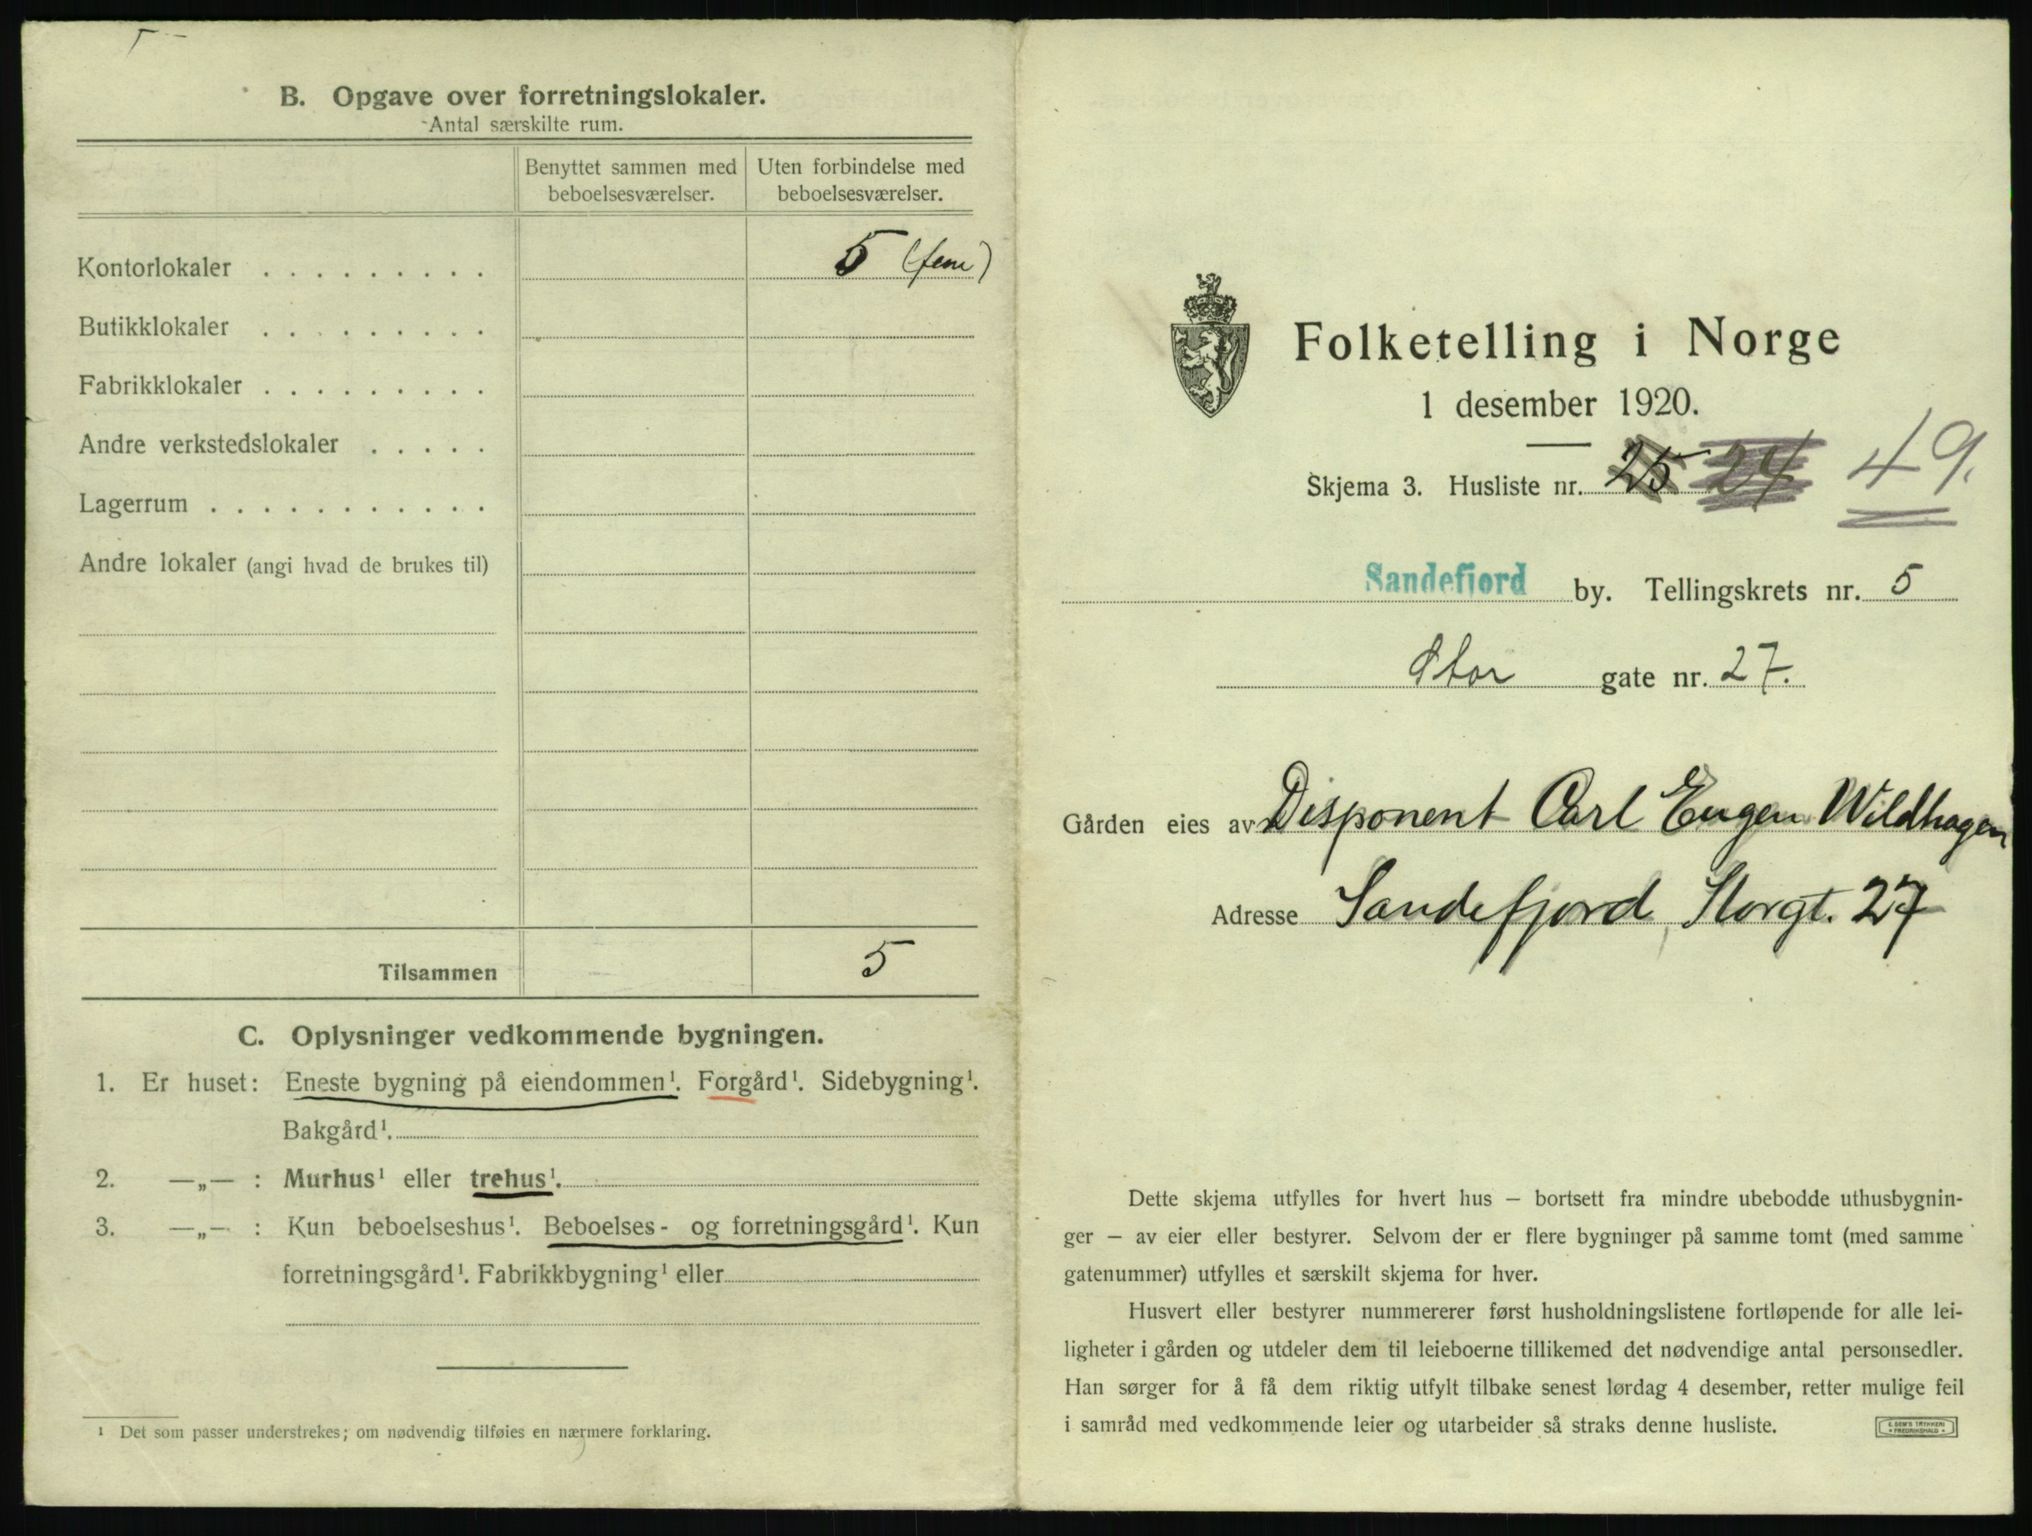 B. Opgave over forretningslokaler.
Antal særskilte rum.
Benyttet sammen med beboelsesværelser.
Uten forbindelse med beboelsesværelser.
Kontorlokaler . . . . . . . . . 5 (fem)
Butikklokaler . . . . . . . . .
Fabrikklokaler . . . . . . . . .
Andre verkstedslokaler . . . . .
Lagerrum . . . . . . . . . . . .
Andre lokaler (angi hvad de brukes til)
Tilsammen 5
C. Oplysninger vedkommende bygningen.
1. Er huset: Eneste bygning på eiendommen¹. Forgård¹. Sidebygning¹.
Bakgård¹.
2. —„— : Murhus¹ eller trehus¹.
3. —„— : Kun beboelseshus¹. Beboelses- og forretningsgård¹. Kun
forretningsgård¹. Fabrikkbygning¹ eller
¹ Det som passer understrekes; om nødvendig tilføies en nærmere forklaring.
Folketelling i Norge
1 desember 1920.
Skjema 3. Husliste nr. 25 24 49.
Sandefjord by. Tellingskrets nr. 5
Stor gate nr. 27.
Gården eies av Disponent Carl Eugen Wildhagen
Adresse Sandefjord, Storgt. 27
Dette skjema utfylles for hvert hus – bortsett fra mindre ubebodde uthusbygnin-
ger – av eier eller bestyrer. Selvom der er flere bygninger på samme tomt (med samme
gatenummer) utfylles et særskilt skjema for hver.
Husvert eller bestyrer nummererer først husholdningslistene fortløpende for alle lei-
ligheter i gården og utdeler dem til leieboerne tillikemed det nødvendige antal personsedler.
Han sørger for å få dem riktig utfylt tilbake senest lørdag 4 desember, retter mulige feil
i samråd med vedkommende leier og utarbeider så straks denne husliste.
E. SEM'S TRYKKERI
FREDRIKSHALD